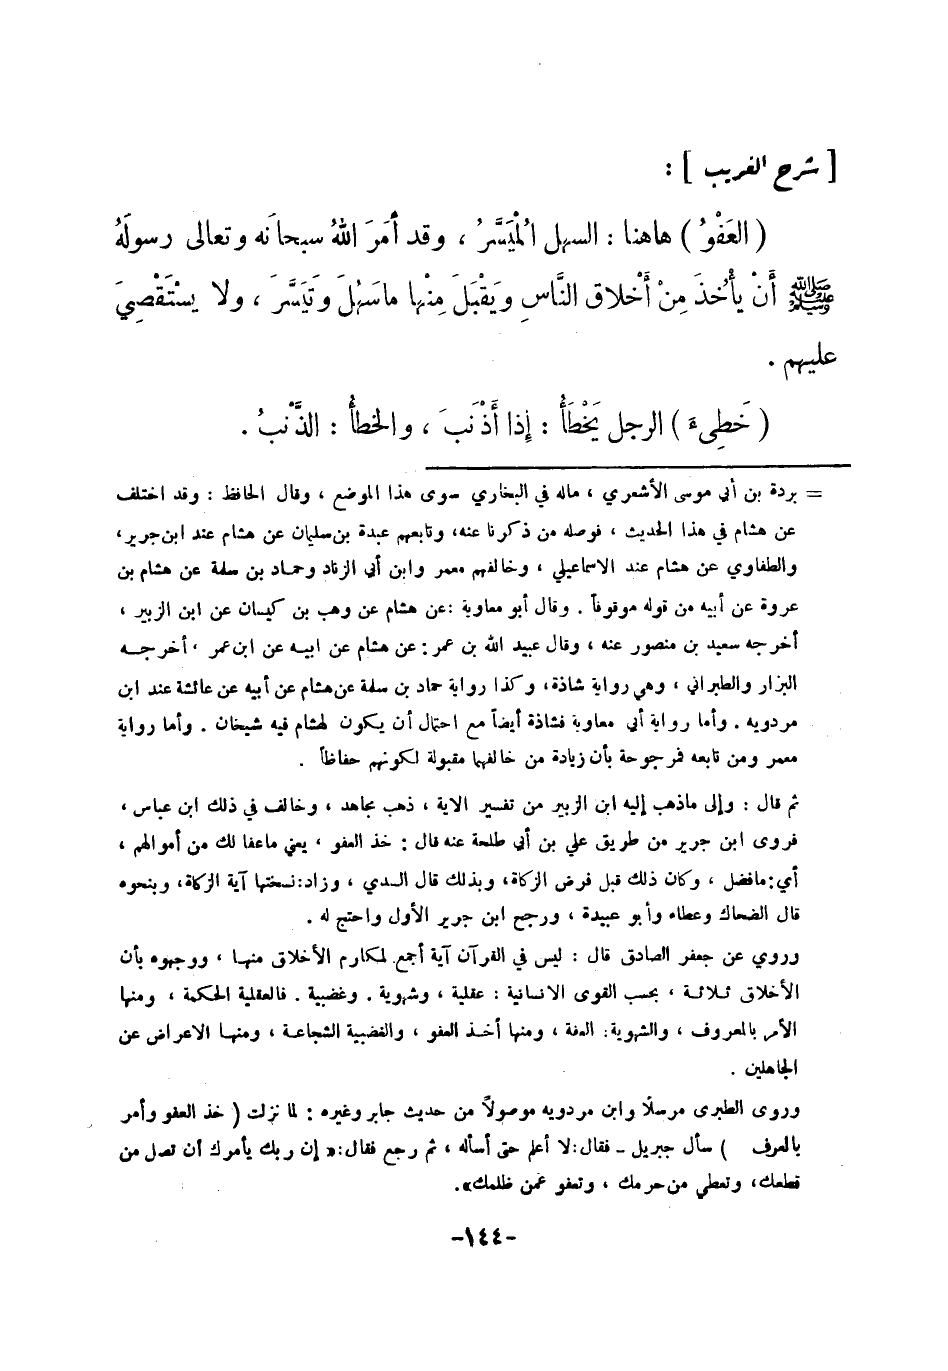 [ شرح الغريب ] :
( العَفْوُ ) هاهنا : السهل المُيَسَّرُ ، وقد أمَرَ اللهُ سبحانَه وتعالى رسولَهُ
ﷺ أَنْ يأْخُذَ مِنْ أَخْلاق النَّاسِ وَيَقْبَلَ مِنْها ماسَهُلَ وَتَيَسَّرَ ، ولا يسْتَقْصِيَ
عليهم .
( خَطِىءَ ) الرجل يَخْطَأُ : إذا أَذْنَبَ ، والخطأُ : الذَّنْبُ .
= بردة بن أبي موسى الأشعري ، ماله في البخاري سوى هذا الموضع ، وقال الحافظ : وقد اختلف
عن هشام في هذا الحديث ، فوصله من ذكرنا عنه، وتابعهم عبدة بن سليمان عن هشام عند ابن جرير،
والطفاوي عن هشام عند الاسماعيلي ، وخالفهم معمر وابن أبي الزناد وحماد بن سلمة عن هشام بن
عروة عن أبيه من قوله موقوفاً . وقال أبو معاوية :عن هشام عن وهب بن كيسان عن ابن الزبير ،
أخرجه سعيد بن منصور عنه ، وقال عبيد الله بن عمر: عن هشام عن ابيه عن ابن عمر ، أخرجه
البزار والطبراني ، وهي رواية شاذة، وكذا رواية حماد بن سلمة عن هشام عن أبيه عن عائشة عند ابن
مردويه . وأما رواية أبي معاوية فشاذة أيضاً مع احتمال أن يكون لهشام فيه شيخان . وأما رواية
معمر ومن تابعه فمرجوحة بأن زيادة من خالفهما مقبولة لكونهم حفاظاً .
ثم قال : وإلى ماذهب إليه ابن الزبير من تفسير الاية ، ذهب مجاهد ، وخالف في ذلك ابن عباس ،
فروى ابن جرير من طريق علي بن أبي طلحة عنه قال : خذ العفو ، يعني ماعفا لك من أموالهم ،
أي:مافضل ، وكان ذلك قبل فرض الزكاة، وبذلك قال السدي ، وزاد:نسختها آية الزكاة، وبنحوه
قال الضحاك وعطاء وأبو عبيدة ، ورجح ابن جرير الأول واحتج له .
وروي عن جعفر الصادق قال : ليس في القرآن آية أجمع لمكارم الأخلاق منها ، ووجهوه بأن
الأخلاق ثلاثة ، بحسب القوى الانسانية : عقلية ، وشهوية . وغضبية . فالعقلية الحكمة ، ومنها
الأمر بالمعروف ، والشهوية: العفة ، ومنها أخذ العفو ، والغضبية الشجاعة ، ومنها الاعراض عن
الجاهلين .
وروى الطبرى مرسلاً وابن مردويه موصولاً من حديث جابر وغيره : لما نزلت ( خذ العفو وأمر
بالعرف ) سأل جبريل ـ فقال:لا أعلم حتى أسأله ، ثم رجع فقال:« إن ربك يأمرك أن تصل من
قطعك، وتعطي من حرمك ، وتعفو عمن ظلمك».
-١٤٤-